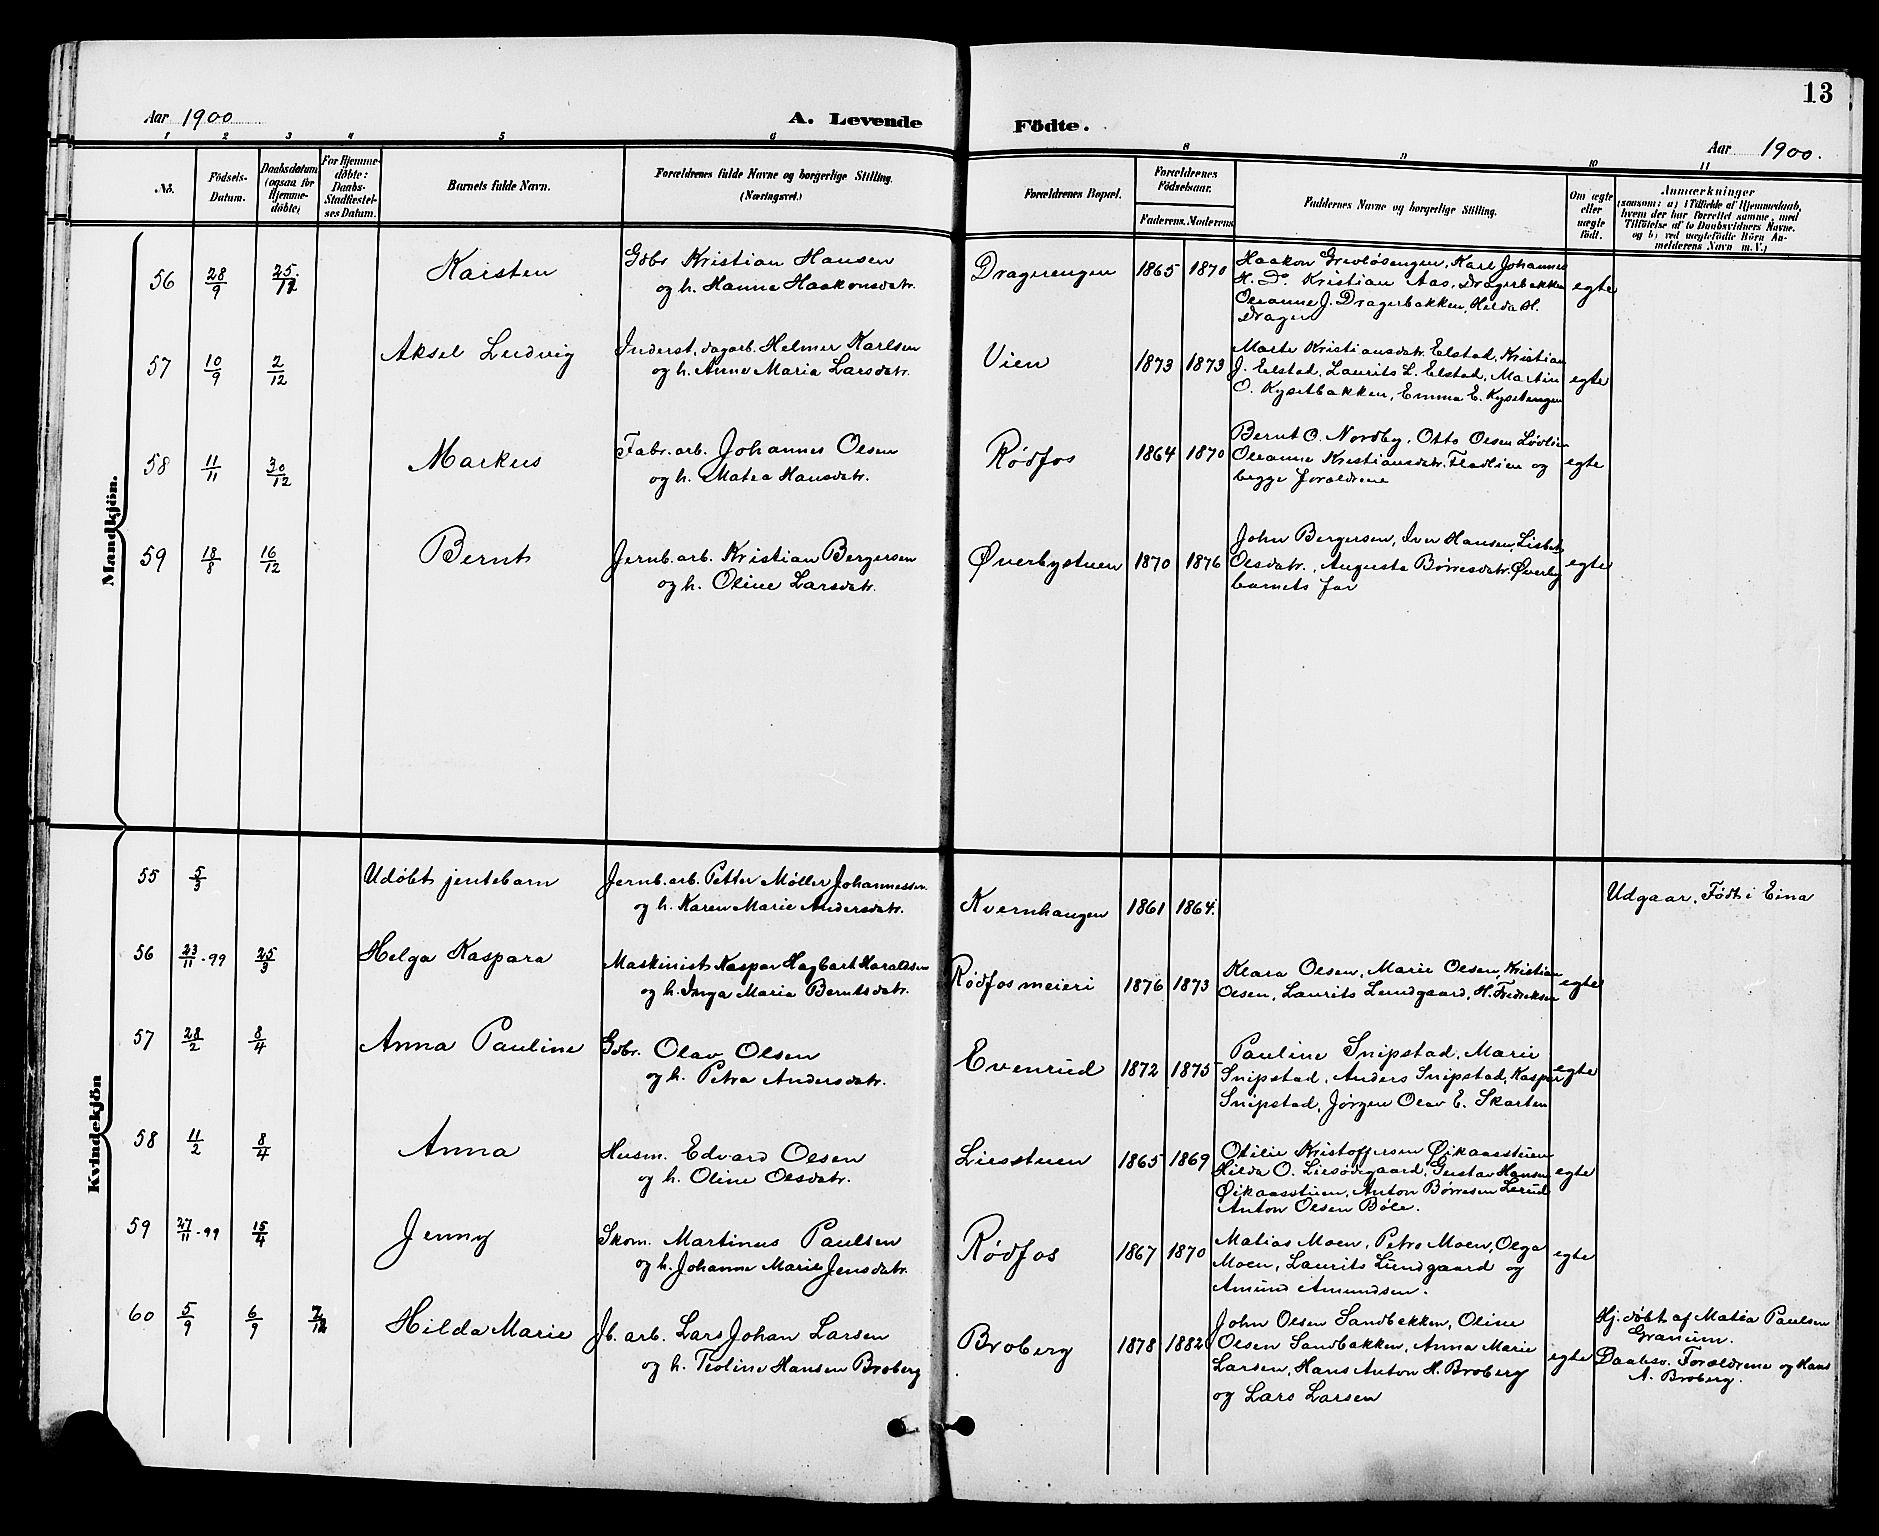 13
Aar 1900
A. Levende Födte.
Aar 1900.
1 2 3 4 5 6 8 9 10 11
No.
Födsels-
Datum.
Daabsdatum
(ogsaa for
Hjemme-
döbte)
For Hjemme-
döbte:
Daabs-
Stadfæstel-
ses Datum.
Barnets fulde Navn.
Forældrenes fulde Navne og borgerlige Stilling.
(Næringsvei.)
Forældrenes Bopæl.
Forældrenes
Födselsaar.
Faderens. Moderens.
Faddernes Navne og borgerlige Stilling.
Om ægte
eller
uægte
födt.
Anmærkninger
(saasom: a) i Tilfælde af Hjemmedaab,
hvem der har forrettet samme, med
Tilföielse af to Daabsvidners Navne.
og b) ved uægtefödte Börn An-
melderens Navn m. V.)
Mandkjön.
56 28/9 25/12 Karsten
Gdbr Kristian Hansen
og h. Hanna Haakonsdatr.
Dragerengen 1865 1870
Haakon Grevløsengen, Karl Johannes
H. Do. Kristian Aas, Dragerbakken
Oleanne J. Dragerbakken, Hilda H.
Drager
egte
57 10/9 2/12 Aksel Ludvig
Inderst, dagarb. Helmer Karlsen
og h. Anne Maria Larsdatr.
Vien 1873 1873
Marte Kristiansdatr. Elstad, Kristian
J. Elstad, Laurits L. Elstad, Martin
O. Kysetbakken, Emma E. Kysetengen
egte
58 11/11 30/12 Markus
Fabr. arb. Johannes Olsen
og h. Matea Hansdatr.
Rødfos 1864 1870
Bernt O. Nordby, Otto Olsen Løvlien
Oleanne Kristiansdatr. Fladlien og
begge foraldrene
egte
59 18/8 16/12 Bernt
Jernb. arb. Kristian Bergersen
og h. Oline Larsdatr.
Øverbystuen 1870 1876
John Bergersen, Iver Hansen, Lisbet
Olsdatr., Augusta Børresdatr. Øverby
barnets far
egte
Kvindekjön
55 5/3 Udøbt jentebarn
Jernb. arb. Petter Møller Johannessen
og h. Karen Marie Andersdatr.
Kvernhaugen 1861 1864.
Udgaar, Født i Eina
56 23/11-99 25/3 Helga Kaspara
Maskinist Kaspar Hagbart Haraldsen
og h. Inga Maria Berntsdatr.
Rødfos meieri 1876 1873
Klara Olsen, Marie Olsen, Kristian
Olsen, Laurits Lundgaard, H. Fredriksen
egte
57 28/2 8/4 Anna Pauline
Gdbr. Olav Olsen
og h. Petra Andersdatr.
Evenrud 1872 1875
Pauline Snipstad, Marie
Snipstad, Anders Snipstad, Kaspar
Snipstad, Jørgen Olav E. Skarten
egte
58 11/2 8/4 Anna
Husm. Edvard Olsen
og h. Oline Olsdatr.
Liesstuen 1865 1869
Otilie Kristoffersen Øikaasstuen
Hilda O. Liesødegaard, Gustav Hansen
Øikaasstuen, Anton Børresen Lerud
Anton Olsen Bøle.
egte
59 27/11-99 15/4 Jenny
Skom. Martinus Paulsen
og h. Johanne Marie Jensdatr.
Rødfos 1867 1870
Matias Moen, Petra Moen, Olga
Moen, Laurits Lundgaard og
Amund Amundsen.
egte
60 5/9 6/9 2/12 Hilda Marie
Jb. arb. Lars Johan Larsen
og h. Teoline Hansen Broberg
Broberg 1878 1882
John Olsen Sandbakken, Oline
Olsen Sandbakken, Anna Marie
Larsen, Hans Anton H. Broberg
og Lars Larsen
egte
Hj. døbt af Matea Paulsen
Granum.
Daabsv. Foraldrene og Hans
A. Broberg.